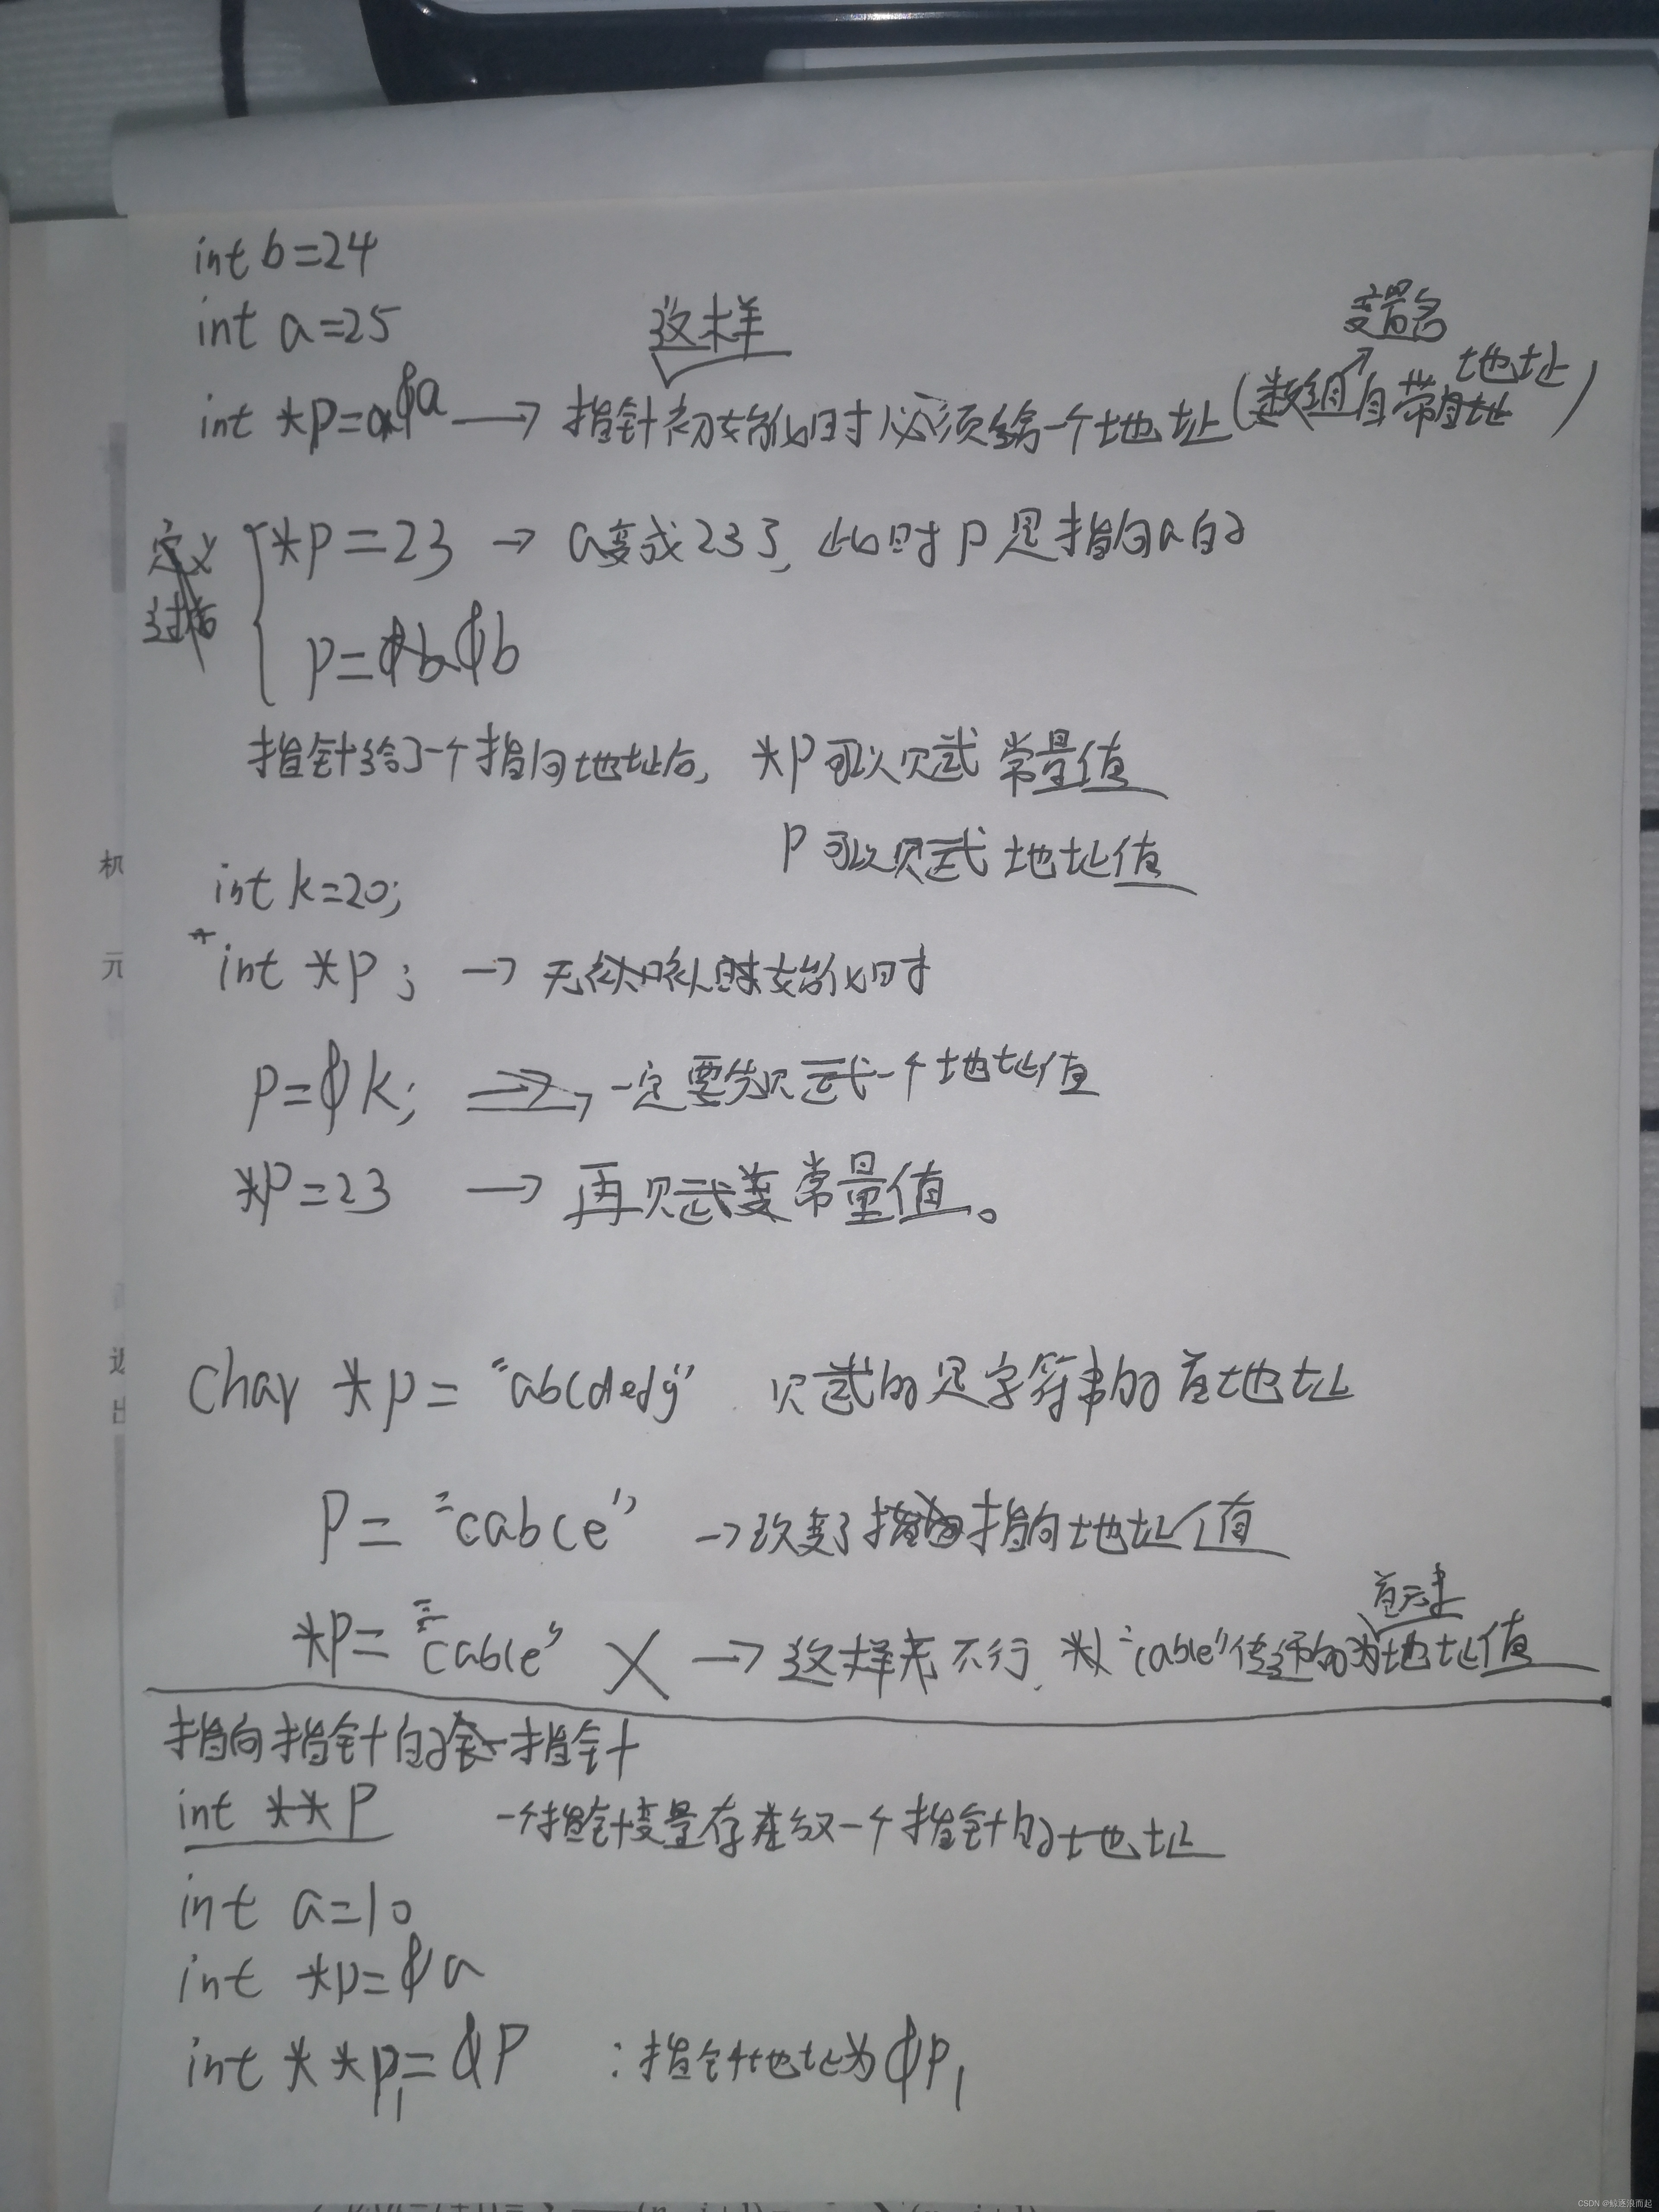 int b=24
int a=25
这样
变量名
int *p=&a → 指针初始化时必须给一个地址(数组自带地址)
定义
*p=23 → a变成23了, 此时p是指向a的
p=&b
指针给了一个指向地址后, *p可以赋 常量值
p 可以赋 地址值
int k=20;
int *p; → 无初始化时
p=&k; → 一定要先赋一个地址值
*p=23 → 再赋常量值。
char *p= "abcdedg" 赋的是字符串的首地址
p= "cabce" → 改变了指向地址值
首元素
*p= "cable" X → 这样 不行, "cable"传递的为地址值
指向指针的指针
int **p 一个指针变量存放 一个指针的地址
int a=10
int *p=&a
int **p1=&p :指针地址为&p1
机
元
CSDN @鲸逐浪而起